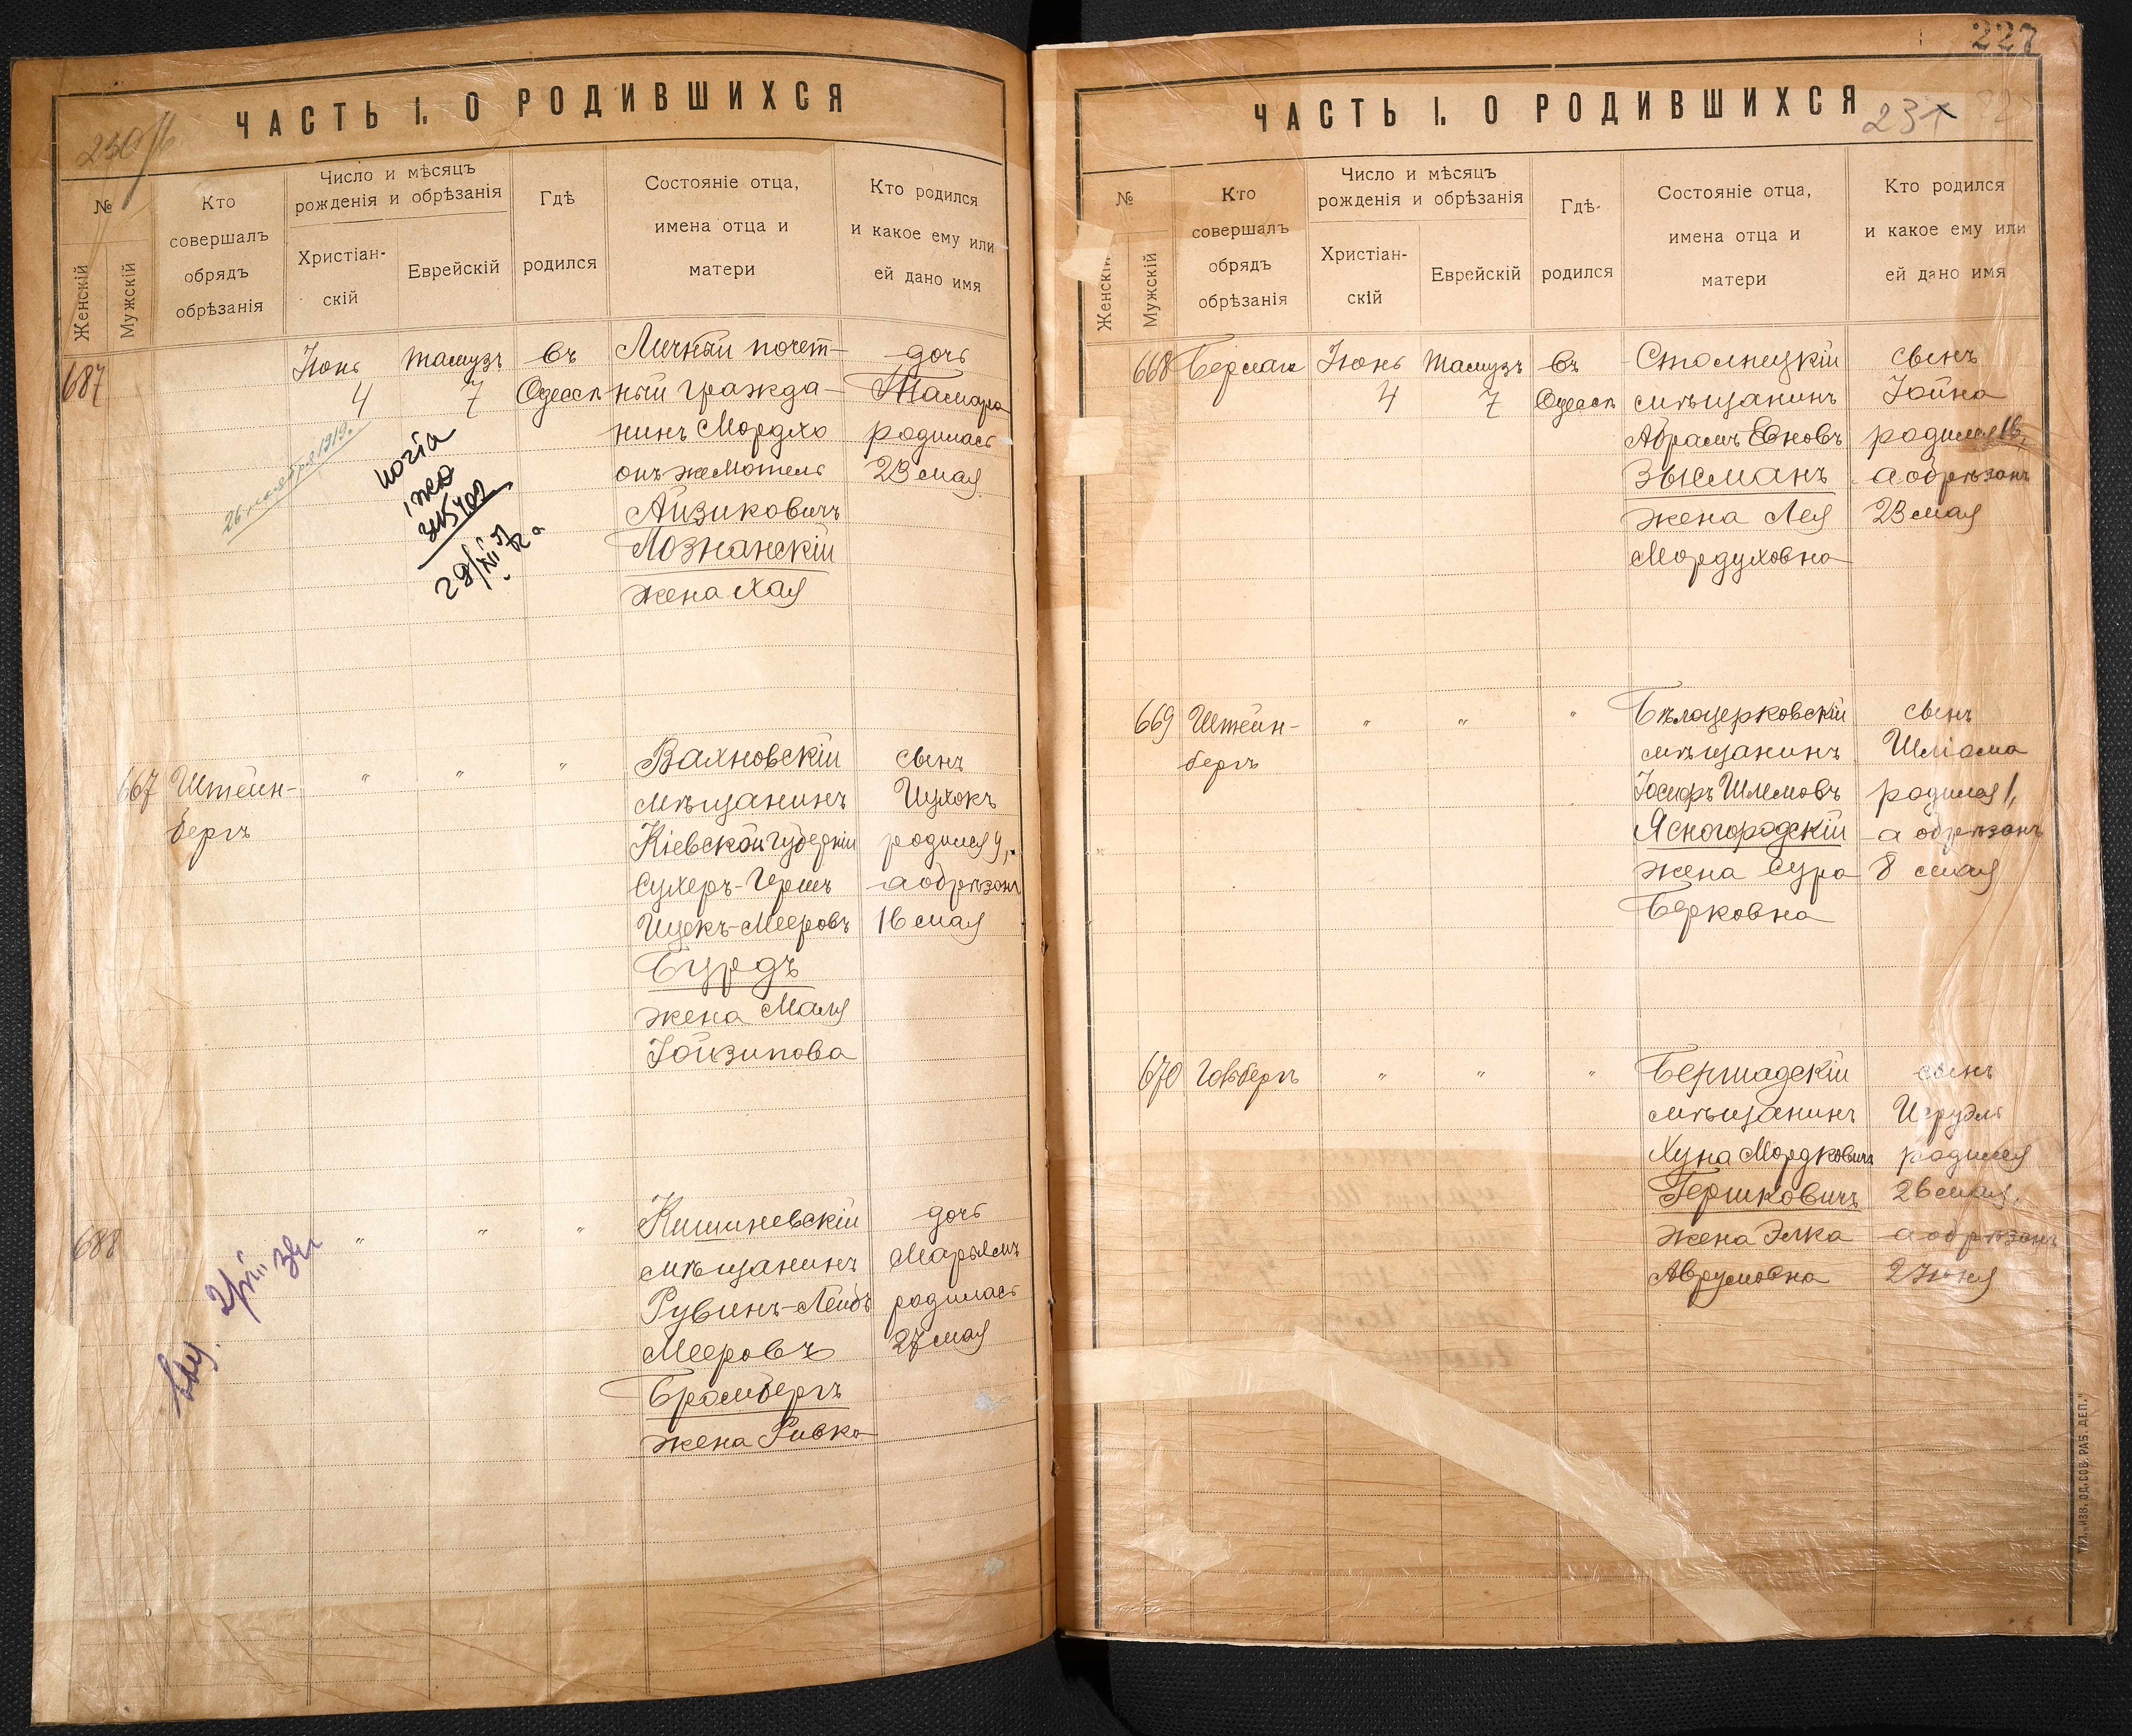 ЧАСТЬ I. О РОДИВШИХСЯ
№
Женскій
Мужскій
Кто
совершалъ
обрядъ
обрѣзанія
Число и мѣсяцъ
рожденія и обрѣзанія
Христіан-
скій
Еврейскій
Гдѣ
родился
Состояніе отца,
имена отца и
матери
Кто родился
и какое ему или
ей дано имя
687
Іюнь
4
Тамузъ
7
въ
Одессѣ
Личный почет-
ный гражда-
нинъ Мордхо
онъ же Мотель
Айзиковичъ
Познанскій
жена Хая
дочь
Тамара
родилась
23 мая
26 ноября 1919.
копія
29/XII
667
Штейн-
бергъ
"
"
"
Вахновскій
мѣщанинъ
Кіевской губерніи
Сухеръ-Герш
Ицекъ-Мееровъ
Бурдъ
жена Маля
сынъ
Ицхокъ
родился 9,
а обрѣзанъ
16 мая
688
"
"
"
Кишиневскій
мѣщанинъ
Рувинъ-Лейбъ
Мееровъ
Бромбергъ
жена Ривка
дочь
Марьямъ
родилась
27 мая
227
ЧАСТЬ I. О РОДИВШИХСЯ
231
№
Женскій
Мужскій
Кто
совершалъ
обрядъ
обрѣзанія
Число и мѣсяцъ
рожденія и обрѣзанія
Христіан-
скій
Еврейскій
Гдѣ-
родился
Состояніе отца,
имена отца и
матери
Кто родился
и какое ему или
ей дано имя
668
Берман
Іюнь
4
Тамузъ
7
въ
Одессѣ
Столпецкій
мѣщанинъ
Абрамъ Евновъ
Зысманъ
жена Лея
Мордуховна
сынъ
Іойна
родился 16,
а обрѣзанъ
23 мая
669
Штейн-
бергъ
"
"
"
Бѣлоцерковскій
мѣщанинъ
Іосифъ Шлемовъ
Ясногородскій
жена Сура
Берковна
сынъ
Шліома
родился 1,
а обрѣзанъ
8 мая
670
"
"
"
Бершадскій
мѣщанинъ
Хуна Мордковичъ
Гершковичъ
жена Элка
Аврумовна
сынъ
Исруэль
родился
26 мая,
а обрѣзанъ
2 Іюня
ТИП. „ИЗВ. ОД. СОВ. РАБ. ДЕП."